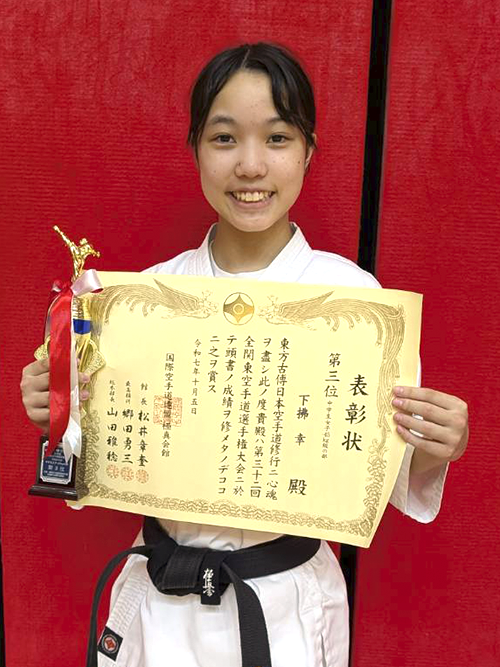 表彰状
第三位
下拂 幸 殿
東方古傳日本空手道修行ニ心魂
ヲ盡シ此ノ度貴殿ハ第三十二回
全関東空手道選手権大会ニ於
テ頭書ノ成績ヲ修メタノデココ
ニ之ヲ賞ス
令和七年十月五日
国際空手道連盟極真会館
館長 松井章奎
最高顧問 郷田勇三
山田雅稔
極真会